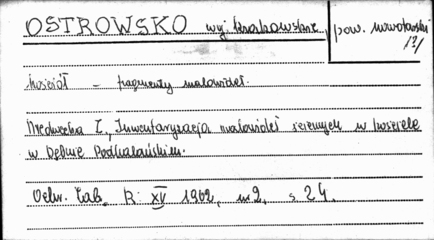 OSTROWSKO woj. krakowskie, pow. nowotarski
/?/
kościół - fragmenty malowideł.
Medwecka Z., Inwentaryzacja malowideł ściennych w kościele
w Dębnie Podhalańskim.
Ochr. Zab. R: XV 1962, nr 2, s 24.